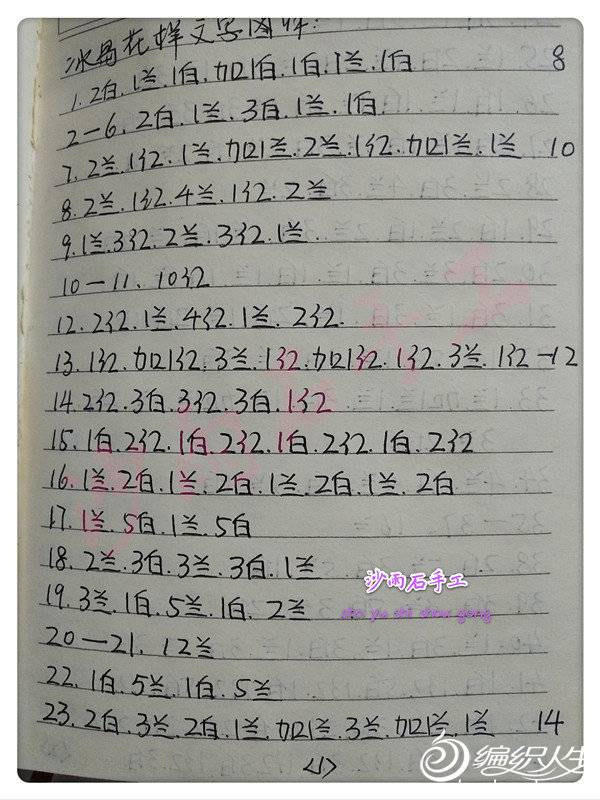 冰晶花样文字图解:
1.2白.1兰.1白.加1白.1白.1兰.1白 8
2—6.2白.1兰.3白.1兰.1白
7.2兰.1红.1兰.加1兰.2兰.1红.加1兰.1兰 10
8.2兰.1红.4兰.1红.2兰
9.1兰.3红.2兰.3红.1兰.
10—11.10红
12.2红.1兰.4红.1兰.2红.
13.1红.加1红.3兰.1红.加1红.1红.3兰.1红—12
14.2红.3白.3红.3白.1红
15.1白.2红.1白.2红.1白.2红.1白.2红
16.1兰.2白.1兰.2白.1兰.2白.1兰.2白
17.1兰.5白.1兰.5白
18.2兰.3白.3兰.3白.1兰
沙雨石手工
sha yu shi shou gong
19.3兰.1白.5兰.1白.2兰
20—21.12兰
22.1白.5兰.1白.5兰
23.2白.3兰.2白.1兰.加1兰.3兰.加1兰.1兰 14
<1>
编织人生